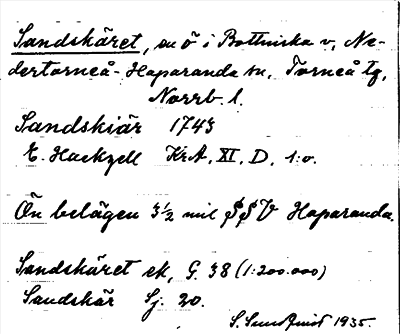 Sandskäret, en ö i Bottniska v, Ne-
dertorneå-Haparanda sn, Torneå tg,
Norrb. l.
Sandskiär 1743
E. Hackzell KrA, XI, D, 1:o.
Ön belägen 3½ mil SSV Haparanda.
Sandskäret ek, G. 38 (1:200.000)
Sandskär Sj. 20.
S. Sundqvist 1935.